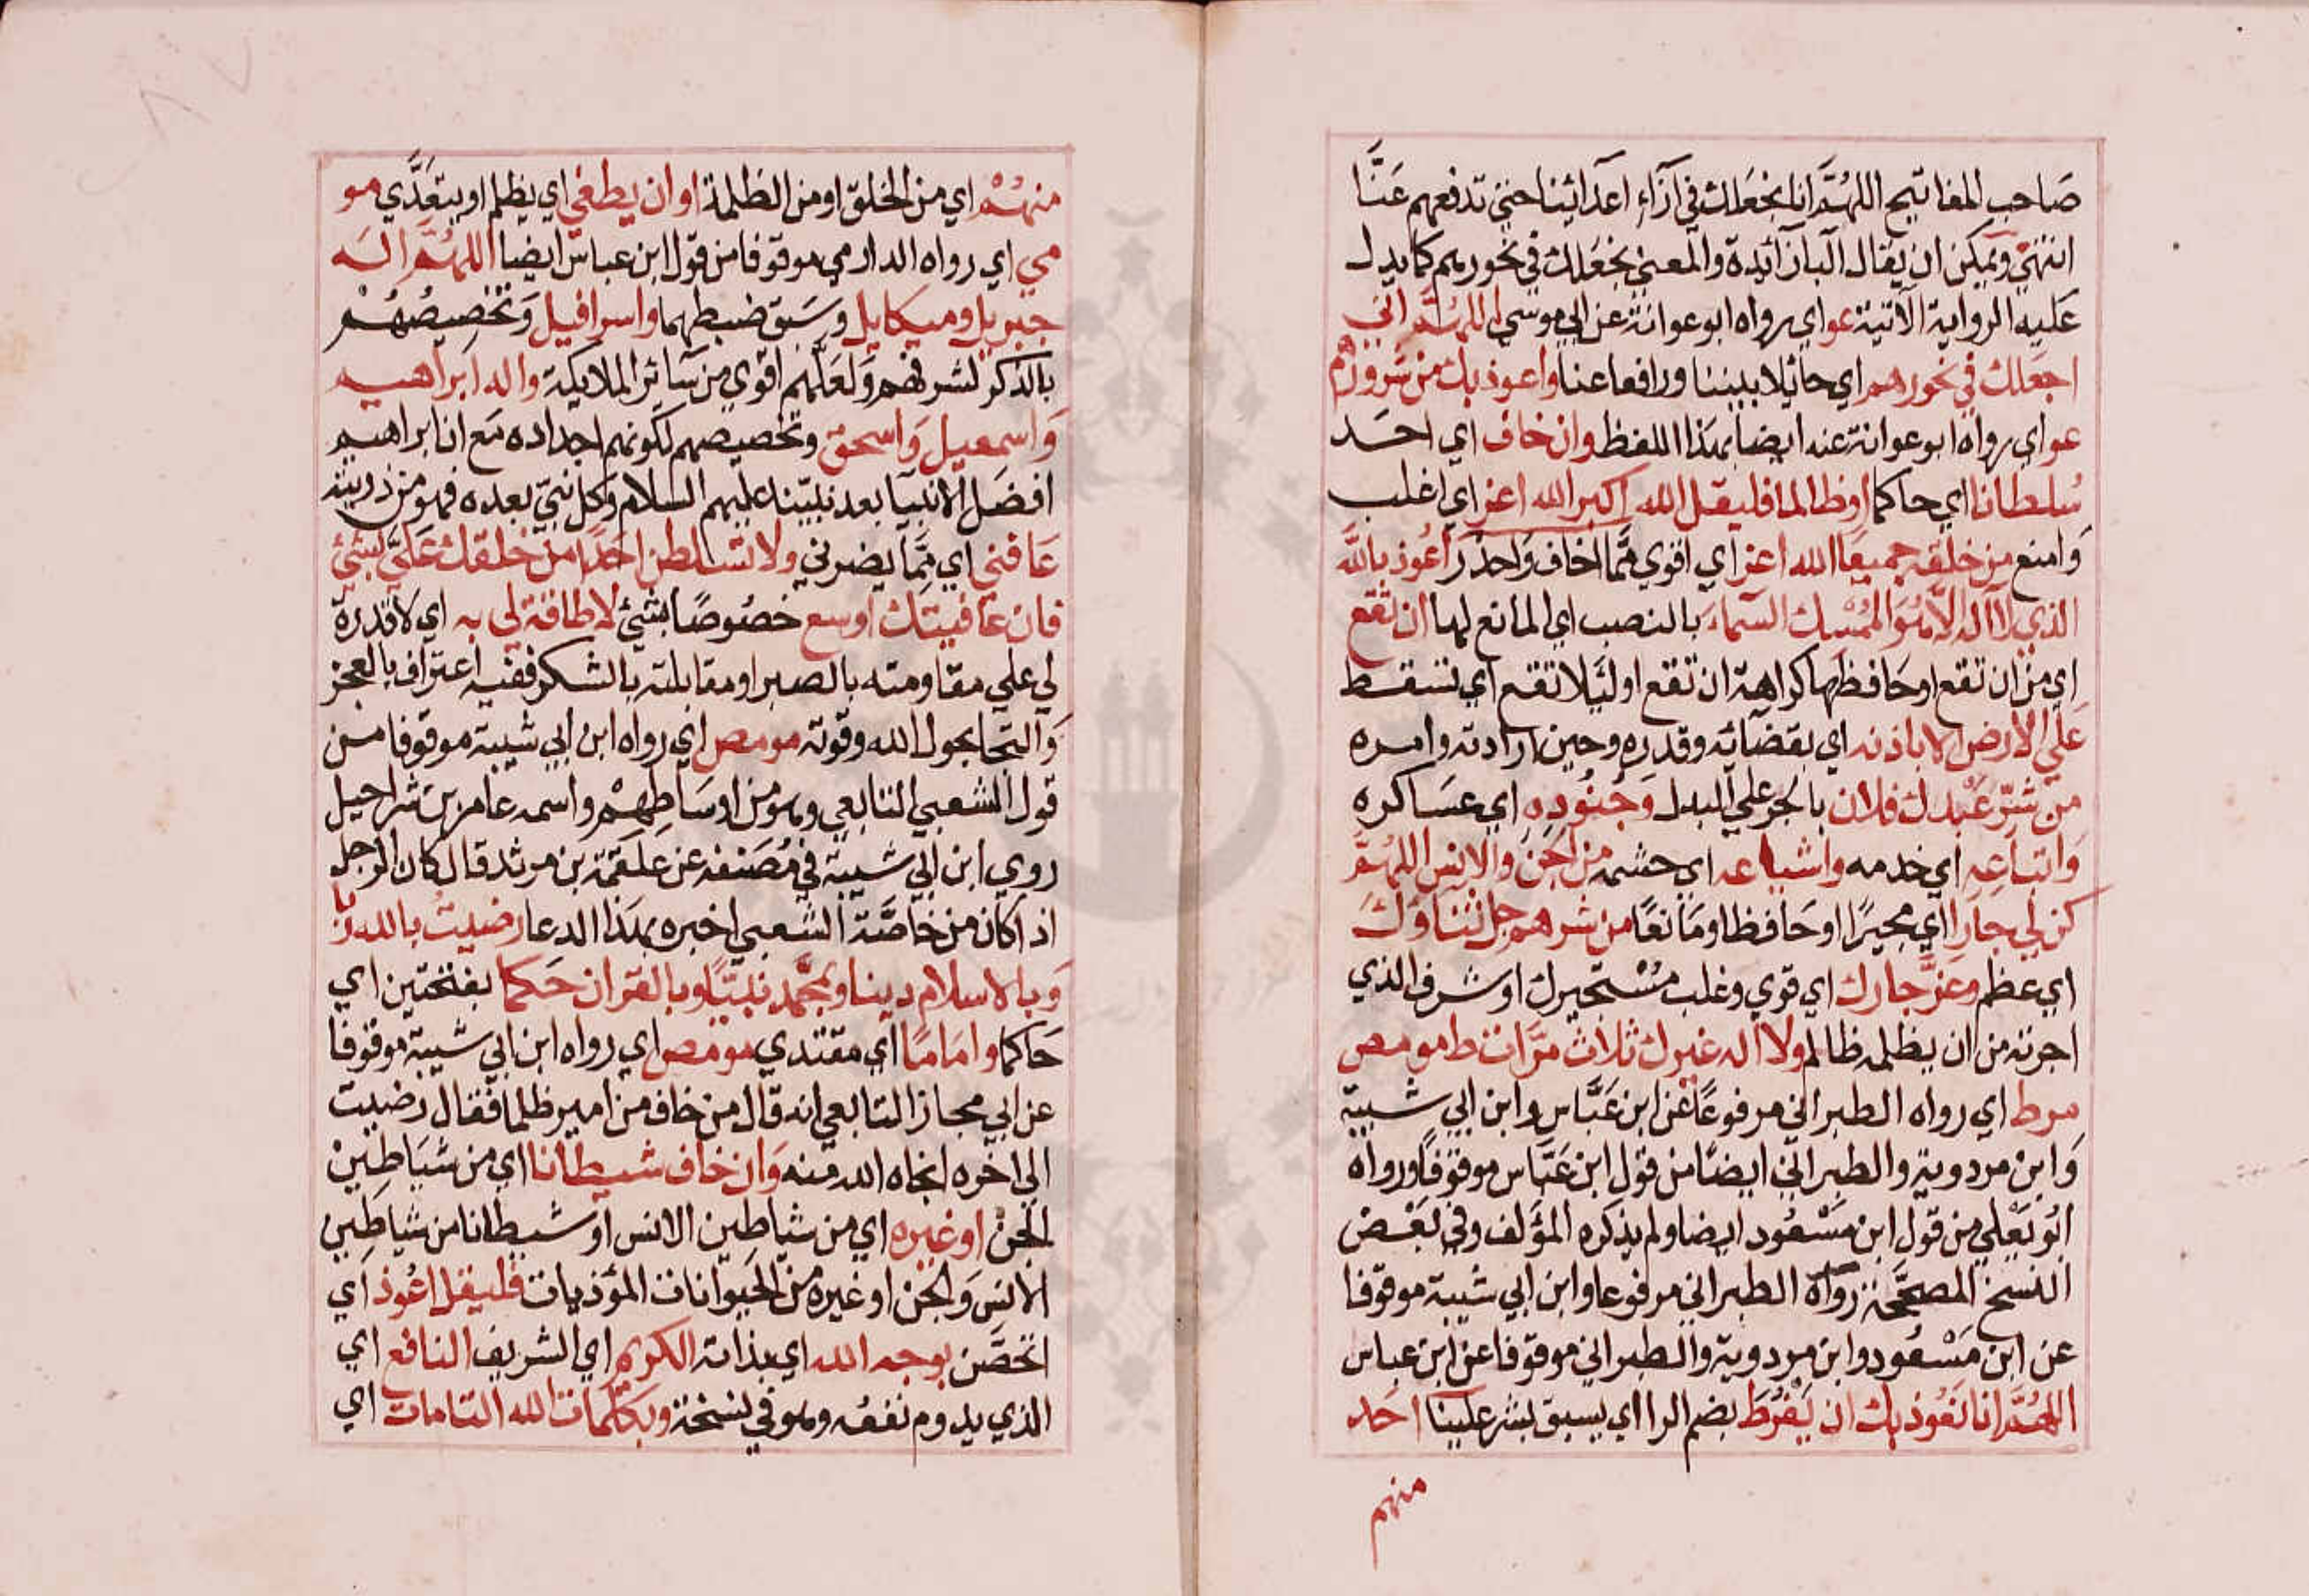 صَاحب المفاتيح اللهُمَّ انا نجعَلك في ازَآءِ اعدَائنا حتي تدفعهم عَنَّا
انتهي ويمكن ان يقال البآ زآئدة والمعني نجعَلك في نحورهم كما يدل
عَليه الرواية الآتية عو اي رواه ابو عوانة عن ابي موسي اللهُمَّ اني
اجعَلك في نحورهم اي حائلا بيننا ورافعا عنا واعوذ بك من شرورهم
عو اي رواه ابو عوانة عنه ايضا بهذا اللفظ وان خاف اي احَد
سُلطانا اي حاكما او ظالما فليقل الله اكبر الله اعز اي اغلب
وَامنع من خلقه جميعًا الله اعز اي اقوي ممَّا اخاف وَاحذر اعُوذ بالله
الذي لا اله الّا هُوَ المُمْسِك السَمآءَ بالنصب اي المانع لها ان تقع
اي من ان تقع او حَافظها كراهة ان تقع او لئَلا تقع اي تسقط
عَلي الارض الا باذنه اي بقضَآئه وقدره وحين ارادته وامره
من شرّ عَبْدك فلان بالجر علي البدل وَجُنُودِهِ اي عسَاكره
وَاتباعِهِ اي خدمه واشياعه اي حشمه من الجن والانس اللهُمَّ
كن لي جَارا اي مجيرًا او حَافظا او مَانعًا من شرهم جل ثناؤك
اي عظم وعزَّ جارك اي قوي وغلب مُسْتجيرك او شرف الذي
اجرته من ان يظلمه ظالم ولا اله غيرك ثلاث مرّات ط مو مص
مر ط اي رواه الطبراني مرفوعًا عن ابن عَبَّاس وابن ابي شيبة
وَابن مردوية والطبراني ايضًا من قول ابن عَبَّاس موقوفًا ورواه
ابُو يَعْلي من قول ابن مَسْعُود ايضا ولم يذكره المؤلف وفي بَعْض
النسخ المصحَّحة رواه الطبراني مرفوعا وابن ابي شيبة موقوفا
عن ابن مَسْعُود وابن مردوية والطبراني موقوفا عن ابن عباس
اللهُمَّ انا نَعُوذ بك ان يَفْرُطَ بضم الرا اي يسبق بشر علينا احَد
منهم
منهُمْ اي من الخلق او من الظلمة او ان يطغي اي يظلم او يتعَدَّي مو
مي اي رواه الدارمي موقوفا من قول ابن عباس ايضا اللهُمَّ اله
جبريل وميكايل وسَبق ضبطهما واسرافيل وَتخصِيصُهُمْ
بالذكر لشرفهم وَلعَلهم اقوي من سَائر الملايكة واله ابراهيم
وَاسمعيل وَاسحق وتخصيصهم لكونهم اجداده مَع ان ابراهيم
افضَل الانبيآ بعد نبيّنا عليهم السلام وكل نبيّ بعده فهو من ذريته
عَافني اي ممَّا يضرني ولا تسلطن احَدًا من خلقك عَليّ بشئ
فان عَافيتك اوسع خصُوصًا بشئ لا طاقة لي به اي لا قدرة
لي علي مقاومته بالصبر او مقابلته بالشكر ففيه اعتراف بالعجز
وَالتجا بحول الله وقوته مو مص اي رواه ابن ابي شيبة موقوفا من
قول الشعبي التابعي وهو من اوسَاطِهمْ واسمه عامر بن شراحيل
روي ابن ابي شيبة في مُصَنفه عن علقمَة بن مرثد قال كان الرجل
اذا كان من خاصَّة الشعبي اخبره بهذا الدعا رضيتُ بالله ربا
وَبالاسلام دينا وبمحَمَّد نبيًّا وبالقران حَكما بفتحتين اي
حَاكما وامَامًا اي مقتدي مو مص اي رواه ابن ابي شيبة موقوفا
عن ابي مجلز التابعي انه قال من خاف من امير ظلما فقال رضيت
الي اخره انجاه الله منه وَان خاف شيطانا اي من شيَاطِينْ
الجن او غيره اي من شياطين الانس او شيطانا من شياطِين
الانس وَالجن او غيره من الحَيوانات المؤذيات فليقل اعُوذ اي
اتحَصَّن بوجه الله اي بذاته الكريم اي الشريف النافع اي
الذي يدوم نفعُه وهو في نسْخة وبكلمات الله التامات اي